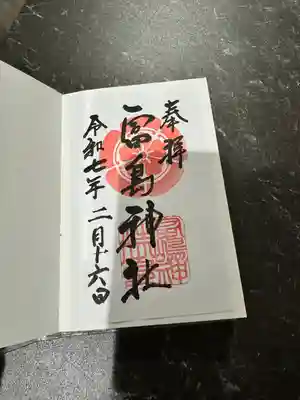 奉拝
富島神社
令和七年 二月十六日